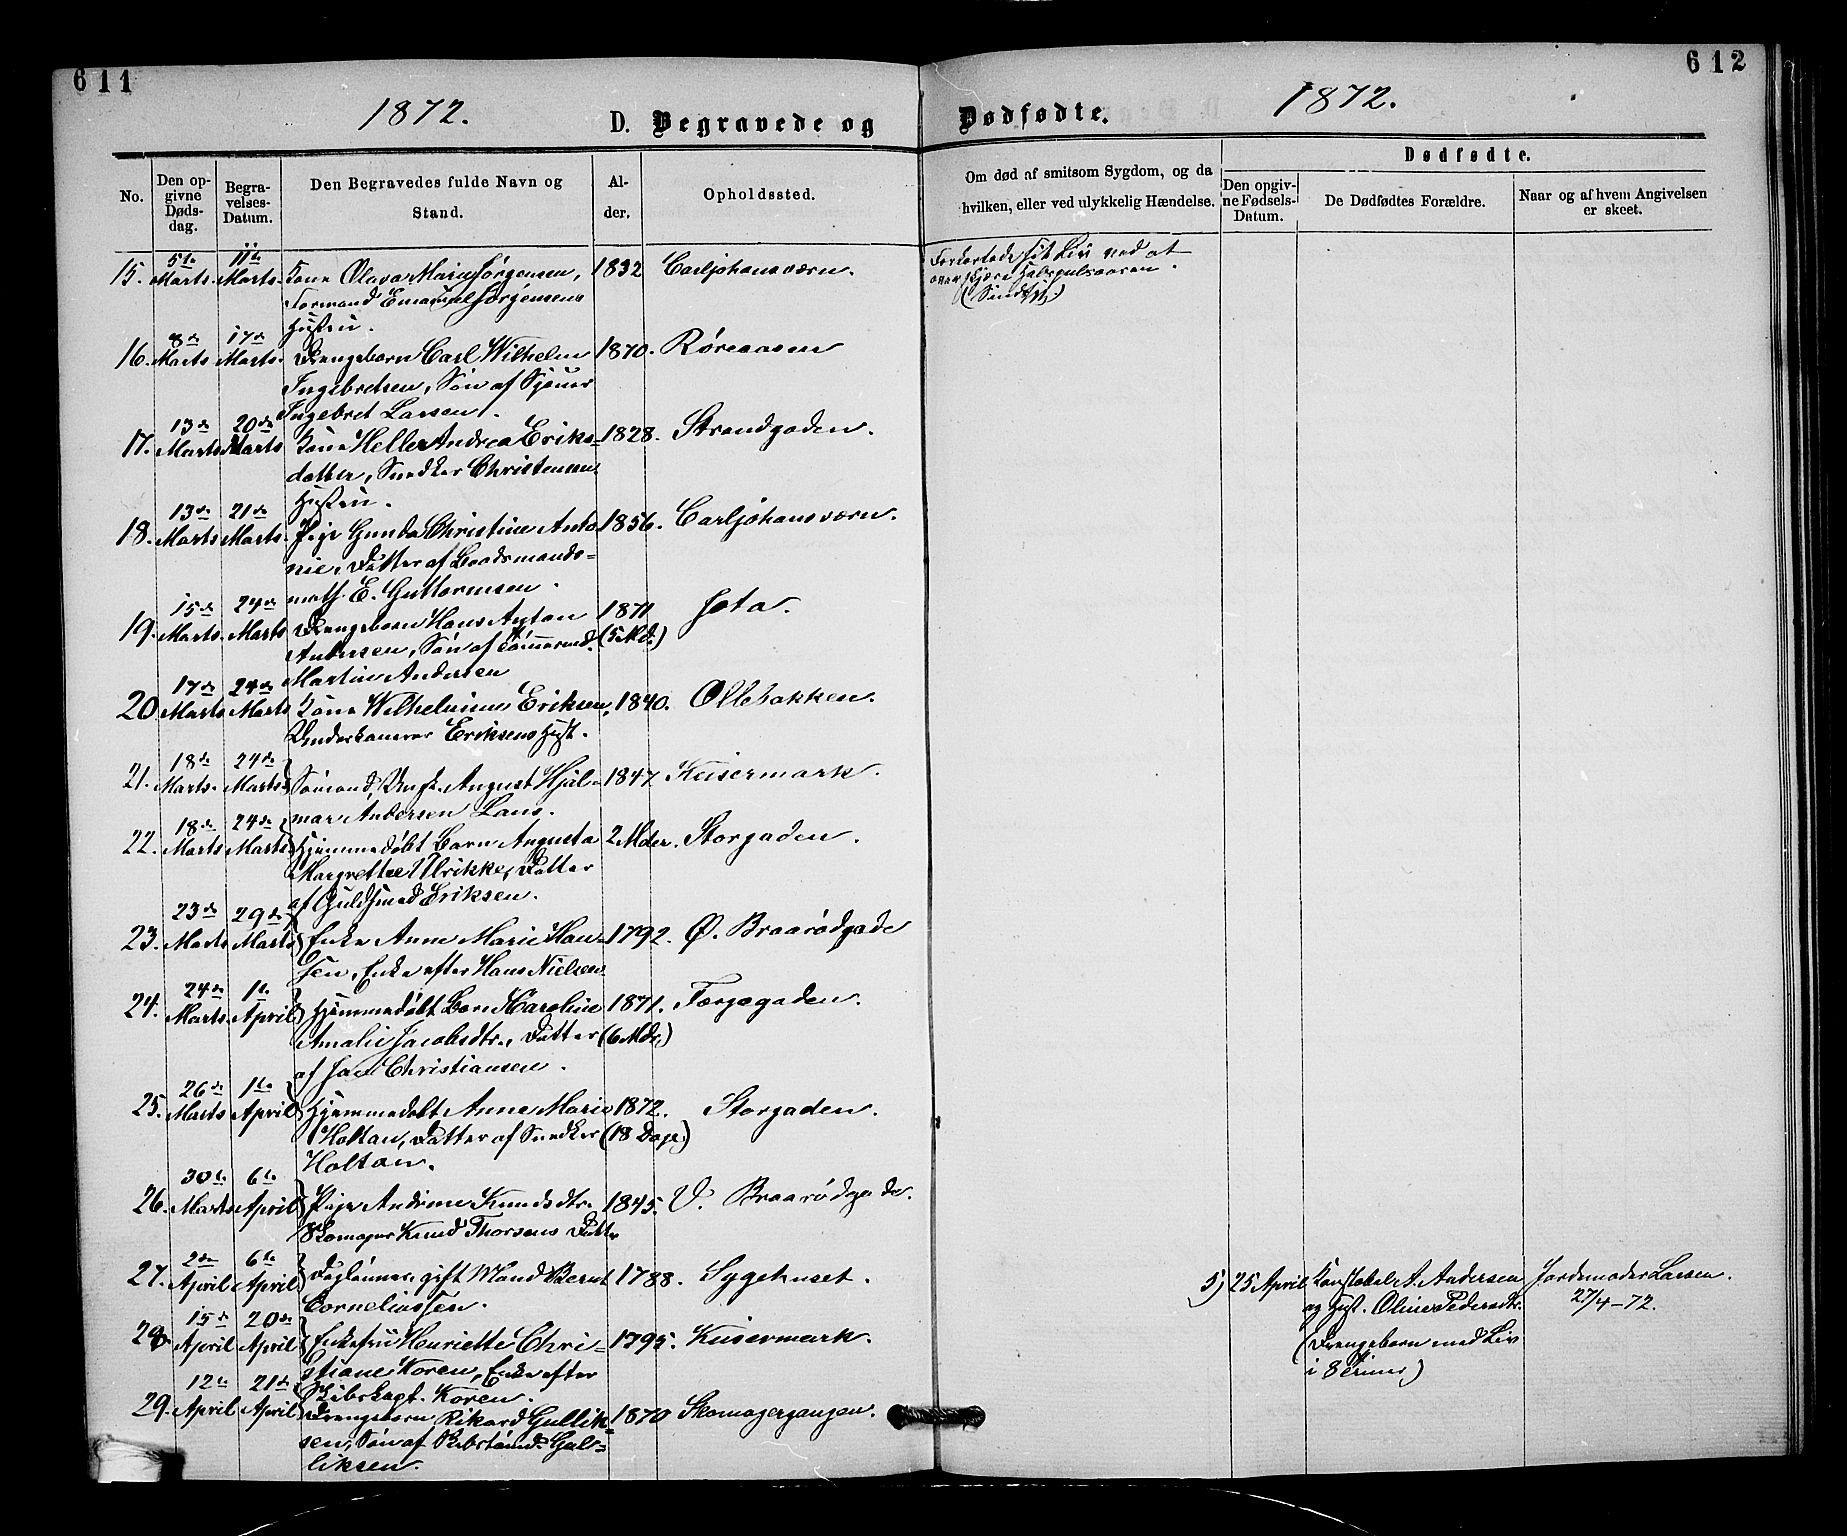 611
612
1872.
1872.
D. Begravede og
Dødfødte.
No.
Den opgivne Dødsdag.
Begravelses-Datum.
Den Begravedes fulde Navn og Stand.
Alder.
Opholdssted.
Om død af smitsom Sygdom, og da hvilken, eller ved ulykkelig Hændelse.
Dødfødte.
Den opgivne Fødsels-Datum.
De Dødfødtes Forældre.
Naar og af hvem Angivelsen er skeet.
15. 5te Marts. 11te Marts. Kone Olava Marie Jørgensen, 1832 Carljohansværn. Forkortede sit Liv ved at
Formand Emanuel Jørgensens overskjære Halspulsaaren.
Hustru.
16. 8de Marts 17de Marts. Drengebarn Carl Wilhelm 1870. Røreaasen
Ingebretsen, Søn af
Ingebret Larsen.
17. 13de Marts 20de Marts Kone Helle Andrea Eriks- 1828. Strandgaden.
datter, Snedker Christensens
Hustru.
18. 13de Marts 21de Marts. Pige Gunda Christine Anto- 1856. Carljohansværn.
nie, Datter af Baadsmands-
math. E. Guttormsen.
19. 15de Marts. 24de Marts Drengebarn Hans Anton 1871 (5 Md.)
Andersen, Søn af Tømmermd.
Martin Andersen
20. 17de Marts 24de Marts Kone Wilhelmine Eriksen, 1840. Ollebakken.
Underkanoner Eriksens Hust.
21. 18de Marts. 24de Marts Sømand, Ungk. August Hjal- 1847 Keisermark.
mar Andersen Lans.
22. 18de Marts 24de Marts Hjemmedøbt Barn Augusta 2 Mdr. Storgaden.
Margrethe Ulrikke, Datter
af Guldsmed Eriksen.
23. 23de Marts 29de Marts Enke Anne Marie Han- 1792. Ø. Braarødgade
sen, Enke efter Hans Nielsen
24. 24de Marts. 1te April Hjemmedøbt Barn Karoline 1871. Færgegaden.
Amalie Jacobsdtr., Datter (6 Mdr.)
af Christiansen.
25. 26de Marts 1te April Hjemmedøbt Anne Marie 1872. Storgaden.
Holtan, Datter af Snedker (18 Dage.)
Holtan.
26. 30te Marts 6te April Pige Andrine Knudsdtr. 1845. V. Braarødgade.
Skomager Knud Thorsens Datter
27. 2den April 6te April Daglønner, gift Mand Bernt 1788. Sygehuset.
Corneliussen.
28. 15de April 20de April Enkefru Henriette Chri- 1795. Keisermark.
stiane Koren, Enke efter
Skibskapt. Koren.
29. 12te April 21de April Drengebarn Rikard Gullik- 1870 Skomagergangen.
sen, Søn af Gul-
liksen.
5) 25 April Konstabel A. Andersen Jordemoder Larsen.
og Hust. Oline Pedersdtr. 27/4-72.
(Drengebarn med Liv
i 8 Timer)